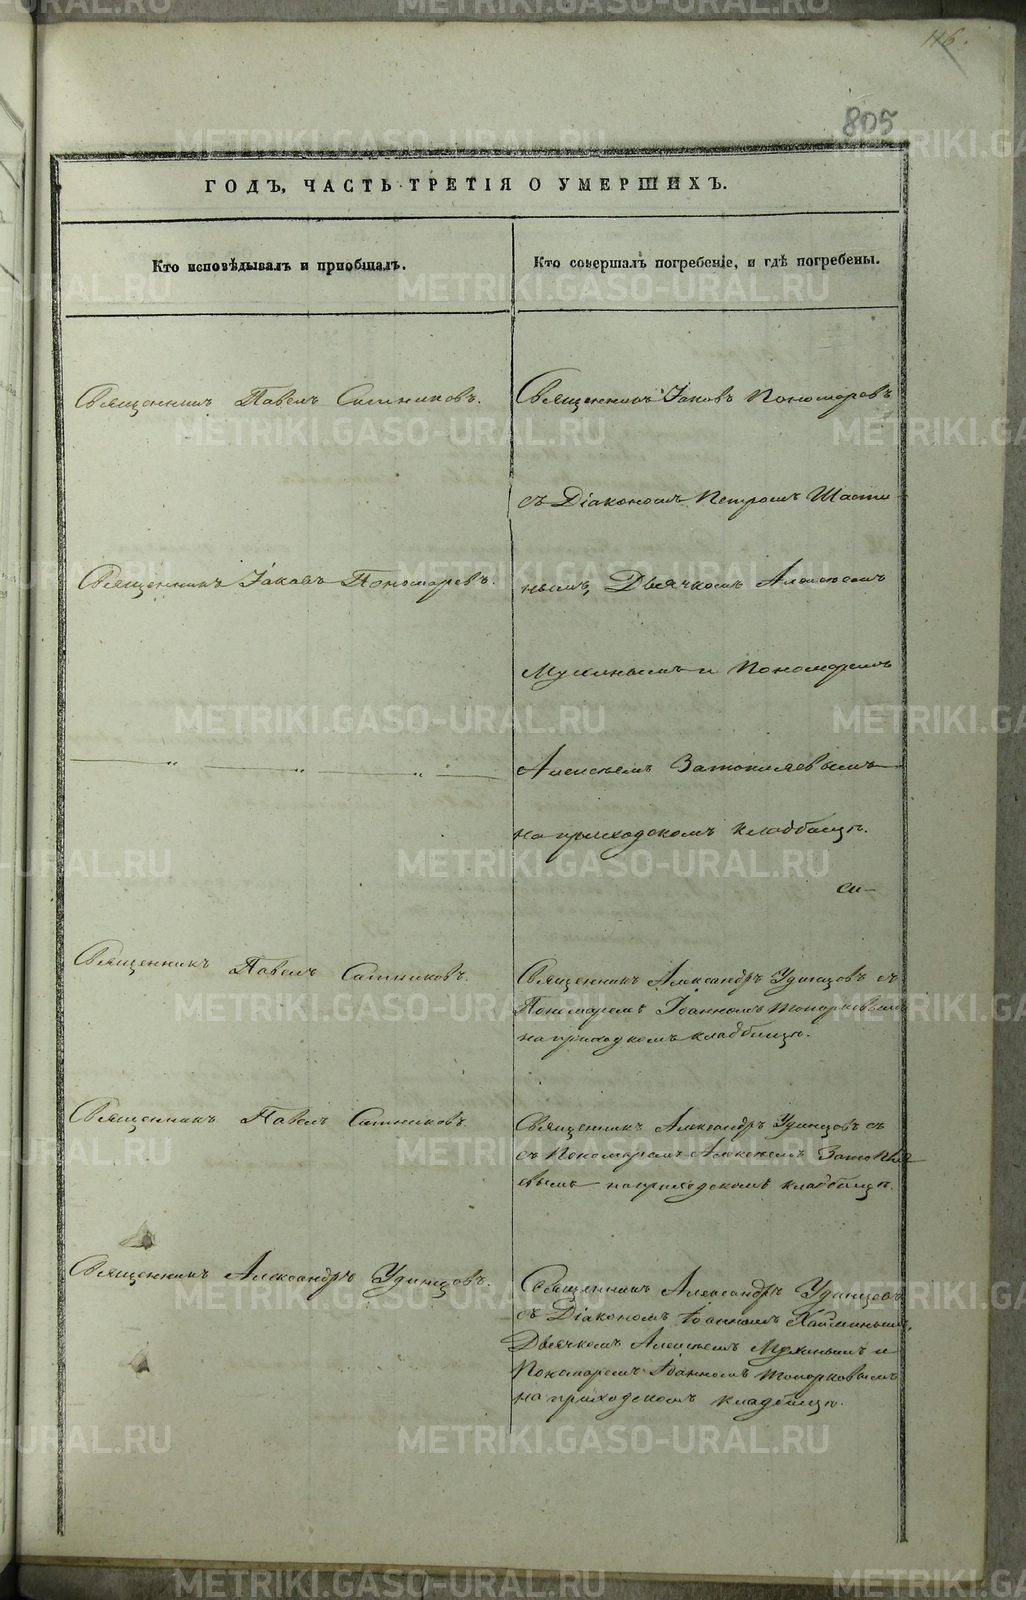 116.
805
ГОДЪ, ЧАСТЬ ТРЕТІЯ О УМЕРШИХЪ.
Кто исповѣдывалъ и приобщалъ.
Кто совершалъ погребеніе, и гдѣ погребены.
Священникъ Павелъ Ситниковъ.
Священникъ Іаковъ Пономаревъ
съ Діакономъ Петромъ Шасти-
Священникъ Іаковъ Пономаревъ.
нымъ, Дьячкомъ Алексѣемъ
Мухинымъ и Пономаремъ
Алексѣемъ Затопляевымъ
на приходскомъ кладбищѣ.
Священникъ Павелъ Ситниковъ.
Священникъ Александръ Удинцовъ съ
Пономаремъ Іоанномъ Топорковымъ
на приходкомъ кладбищѣ.
Священникъ Павелъ Ситниковъ
Священникъ Александръ Удинцовъ съ
съ Пономаремъ Алексѣемъ Затопляе
вымъ на приходскомъ кладбищѣ.
Священникъ Александръ Удинцовъ.
Священникъ Александръ Удинцовъ
съ Діакономъ Іоанномъ
Дьячкомъ Алексѣемъ Мухинымъ и
Пономаремъ Іоанномъ Топорковымъ
на приходскомъ кладбищѣ.
METRIKI.GASO-URAL.RU